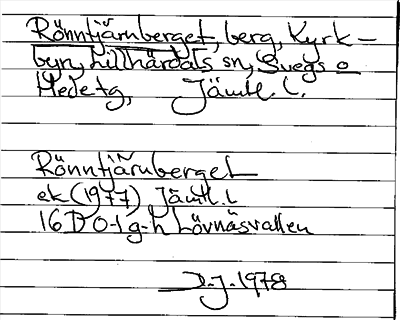 Rönntjärnberget, berg, Kyrk-
byn, Lillhärdals sn, Svegs o
Hede tg, Jämtl. L.
Rönntjärnberget
ek (1977) Jämtl. L
16D 0-1 g-h Lövnäsvallen
D.J. 1978